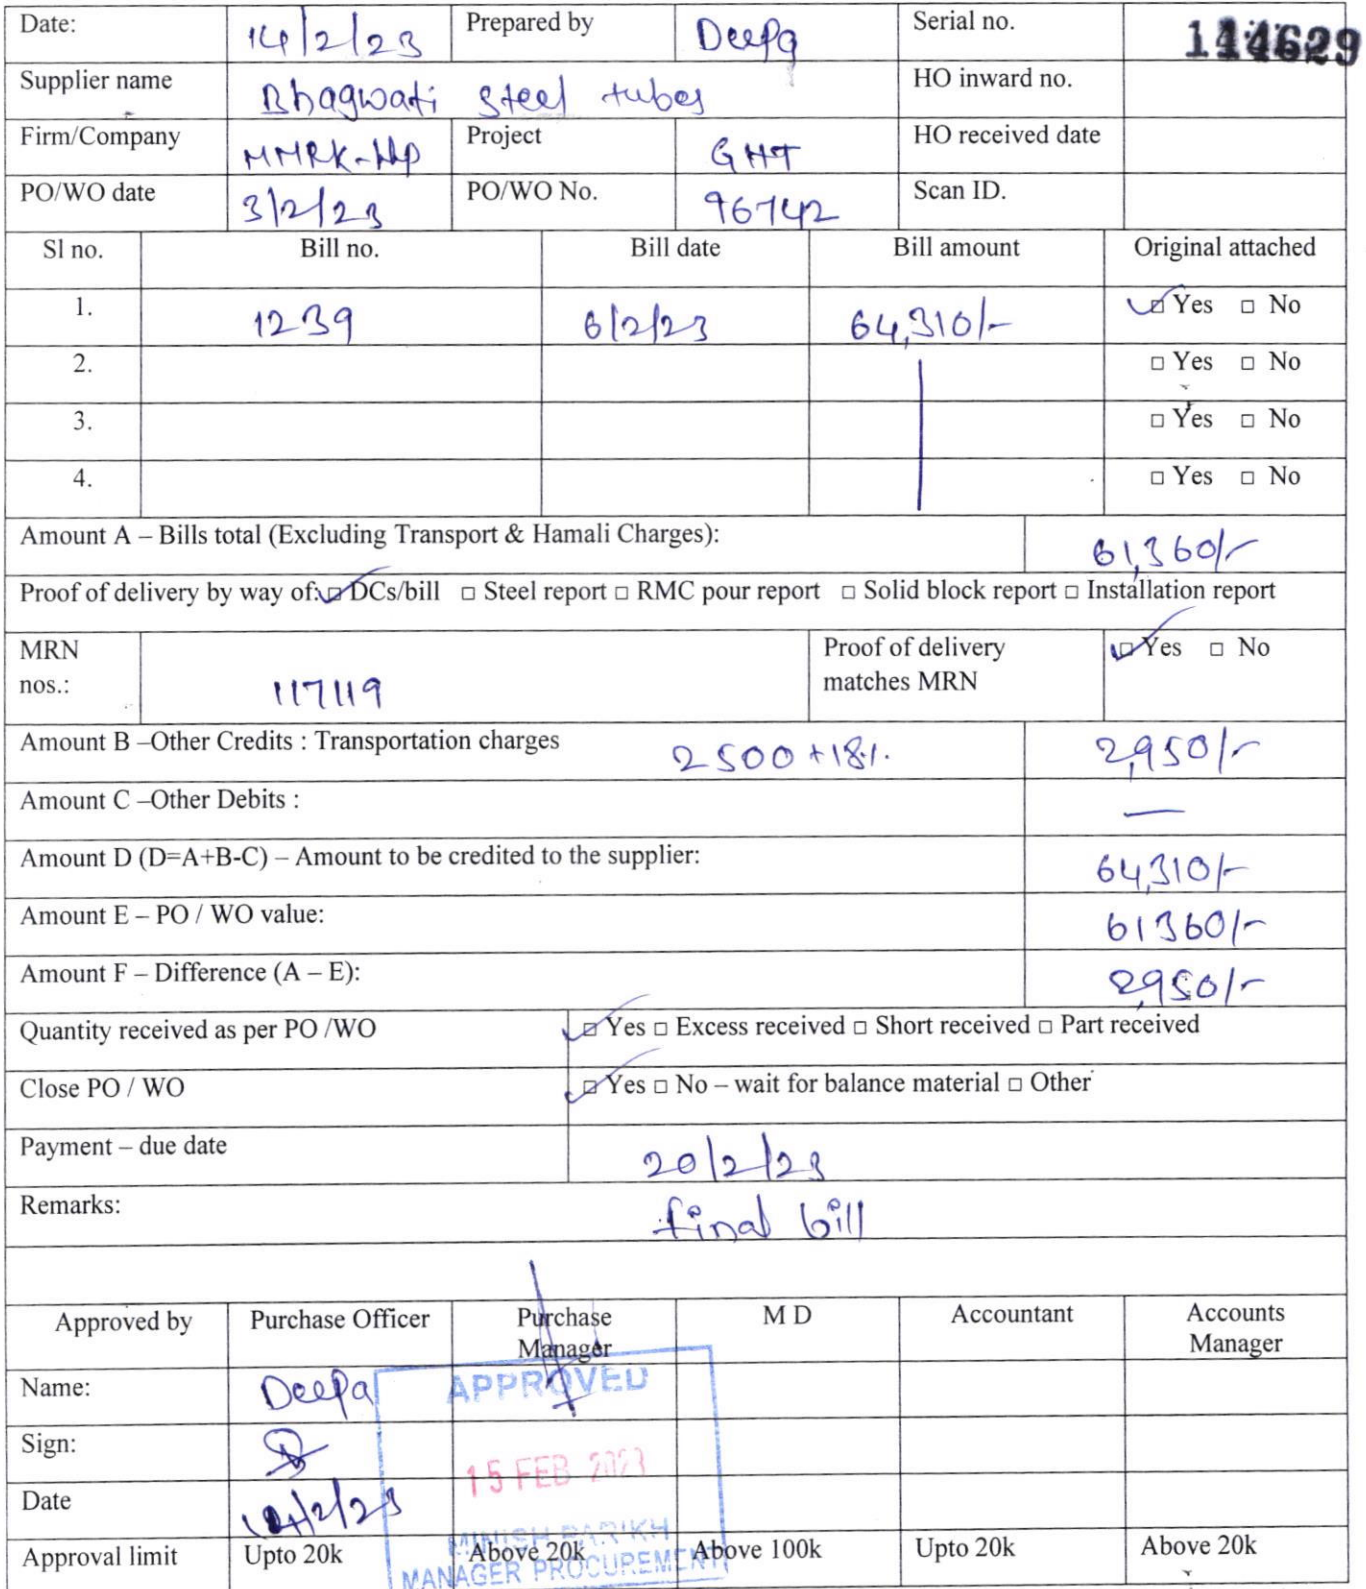 Date: 14/2/23 Prepared by Deepa Serial no. 144629
Supplier name Bhagwati steel tubes HO inward no.
Firm/Company MMRK-llp Project GHT HO received date
PO/WO date 3/2/23 PO/WO No. 96742 Scan ID.
Sl no. Bill no. Bill date Bill amount Original attached
1. 1239 6/2/23 64,310/- ☑ Yes □ No
2. □ Yes □ No
3. □ Yes □ No
4. □ Yes □ No
Amount A – Bills total (Excluding Transport & Hamali Charges): 61,360/-
Proof of delivery by way of: ☑ DCs/bill □ Steel report □ RMC pour report □ Solid block report □ Installation report
MRN nos.: 117119 Proof of delivery matches MRN ☑ Yes □ No
Amount B –Other Credits : Transportation charges 2500+18% 2,950/-
Amount C –Other Debits : —
Amount D (D=A+B-C) – Amount to be credited to the supplier: 64,310/-
Amount E – PO / WO value: 61360/-
Amount F – Difference (A – E): 2,950/-
Quantity received as per PO /WO ☑ Yes □ Excess received □ Short received □ Part received
Close PO / WO ☑ Yes □ No – wait for balance material □ Other
Payment – due date 20/2/23
Remarks: final bill
Approved by Purchase Officer Purchase Manager M D Accountant Accounts Manager
Name: Deepa APPROVED
Sign: 15 FEB 2023
Date 14/2/23
MINISH PARIKH
Approval limit Upto 20k Above 20k Above 100k Upto 20k Above 20k
MANAGER PROCUREMENT